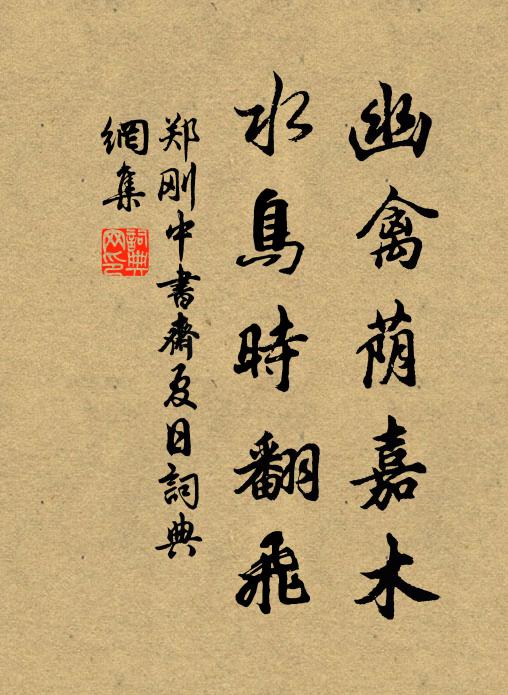 幽禽荫嘉木
水鳥時翻飛
郑刚中書齋夏日詞典
網集
詞典網印